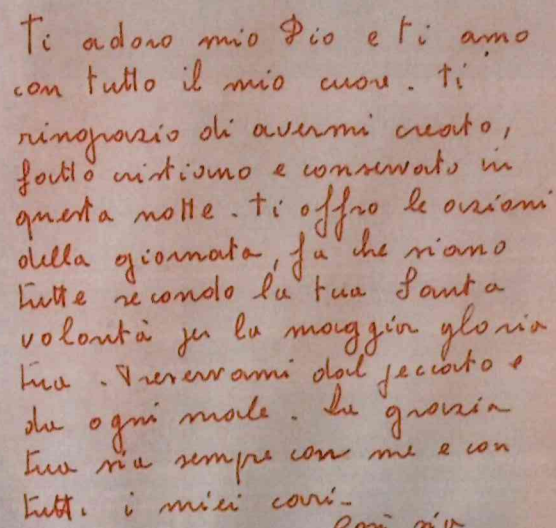 Ti adoro mio Dio e ti amo
con tutto il mio cuore. Ti
ringrazio di avermi creato,
fatto cristiano e conservato in
questa notte. Ti offro le azioni
della giornata, fa che siano
tutte secondo la tua Santa
volontà per la maggior gloria
tua. Preservami dal peccato e
da ogni male. La grazia
tua sia sempre con me e con
tutti i miei cari.
Così sia